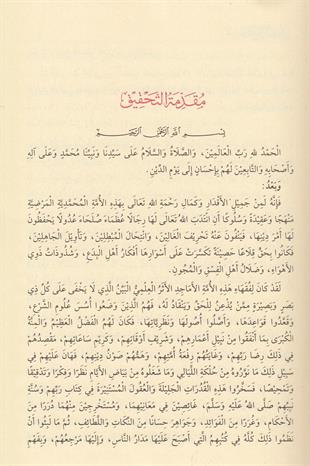 مُقَدِّمَةُ التَّحْقِيقِ
بِسْمِ اللَّهِ الرَّحْمَٰنِ الرَّحِيمِ
الْحَمْدُ للهِ رَبِّ الْعَالَمِينَ، وَالصَّلَاةُ وَالسَّلَامُ عَلَى سَيِّدِنَا وَنَبِيِّنَا مُحَمَّدٍ وَعَلَى آلِهِ
وَأَصْحَابِهِ وَالتَّابِعِينَ لَهُمْ بِإِحْسَانٍ إِلَى يَوْمِ الدِّينِ.
وَبَعْدُ:
فَإِنَّهُ لَمِنْ جَمِيلِ الْأَقْدَارِ وَكَمَالِ رَحْمَةِ اللهِ تَعَالَى بِهَذِهِ الْأُمَّةِ الْمُحَمَّدِيَّةِ الْمَرْضِيَّةِ
مَنْهَجًا وَعَقِيدَةً وَسُلُوكًا أَنِ انْتَدَبَ اللهُ تَعَالَى لَهَا رِجَالًا عُظَمَاءَ صُلَحَاءَ عُدُولًا يَحْفَظُونَ
لَهَا أَمْرَ دِينِهَا، فَيَنْفُونَ عَنْهُ تَحْرِيفَ الْغَالِينَ، وَانْتِحَالَ الْمُبْطِلِينَ، وَتَأْوِيلَ الْجَاهِلِينَ،
فَكَانُوا بِحَقٍّ قِلَاعًا حَصِينَةً تَكَسَّرَتْ عَلَى أَسْوَارِهَا أَفْكَارُ أَهْلِ الْبِدَعِ، وَشُذُوذَاتُ ذَوِي
الْأَهْوَاءِ، وَضَلَالُ أَهْلِ الْفِسْقِ وَالْمُجُونِ.
لَقَدْ كَانَ لِفُقَهَاءِ هَذِهِ الْأُمَّةِ الْأَمَاجِدِ الْأَثَرُ الْعِلْمِيُّ الْبَيِّنُ الَّذِي لَا يَخْفَى عَلَى كُلِّ ذِي
بَصَرٍ وَبَصِيرَةٍ مِمَّنْ يُذْعِنُ لِلْحَقِّ وَيَنْقَادُ لَهُ، فَهُمُ الَّذِينَ وَضَعُوا أُسُسَ عُلُومِ الشَّرْعِ،
وَقَعَّدُوا قَوَاعِدَهَا، وَأَصَّلُوا أُصُولَهَا وَنَظَرِيَّاتِهَا، فَكَانَ لَهُمُ الْفَضْلُ الْعَظِيمُ وَالْمِنَّةُ
الْكُبْرَى بِمَا أَنْفَقُوا مِنْ نَبِيلِ أَعْمَارِهِمْ، وَشَرِيفِ أَوْقَاتِهِمْ، وَكَرِيمِ سَاعَاتِهِمْ، مَقْصِدُهُمْ
فِي ذَلِكَ رِضَا رَبِّهِمْ، وَغَايَتُهُمْ رِفْعَةُ أُمَّتِهِمْ، وَهَمُّهُمْ صَوْنُ دِينِهِمْ، فَهَانَ عَلَيْهِمْ فِي
سَبِيلِ ذَلِكَ مَا نَوَّرُوهُ مِنْ حُلْكَةِ اللَّيَالِي وَمَا شَغَلُوهُ مِنْ بَيَاضِ الْأَيَّامِ نَظَرًا وَفِكْرًا وَتَدْقِيقًا
وَتَمْحِيصًا، فَسَخَّرُوا هَذِهِ الْقُدُرَاتِ الْجَلِيلَةَ وَالْعُقُولَ الْمُسْتَنِيرَةَ فِي كِتَابِ رَبِّهِمْ وَسُنَّةِ
نَبِيِّهِمْ صَلَّى اللهُ عَلَيْهِ وَسَلَّمَ، غَائِصِينَ فِي مَعَانِيهِمَا، وَمُسْتَخْرِجِينَ مِنْهُمَا دُرَرًا مِنَ
الْأَحْكَامِ، وَغُرَرًا مِنَ الْفَوَائِدِ، وَجَوَاهِرَ حِسَانًا مِنَ النِّكَاتِ وَاللَّطَائِفِ، ثُمَّ مَا لَبِثُوا أَنْ
نَظَمُوا ذَلِكَ كُلَّهُ فِي كُتُبِهِمُ الَّتِي أَصْبَحَ عَلَيْهَا مَدَارُ النَّاسِ، وَإِلَيْهَا مَرْجِعُهُمْ، وَبِفَهْمِ